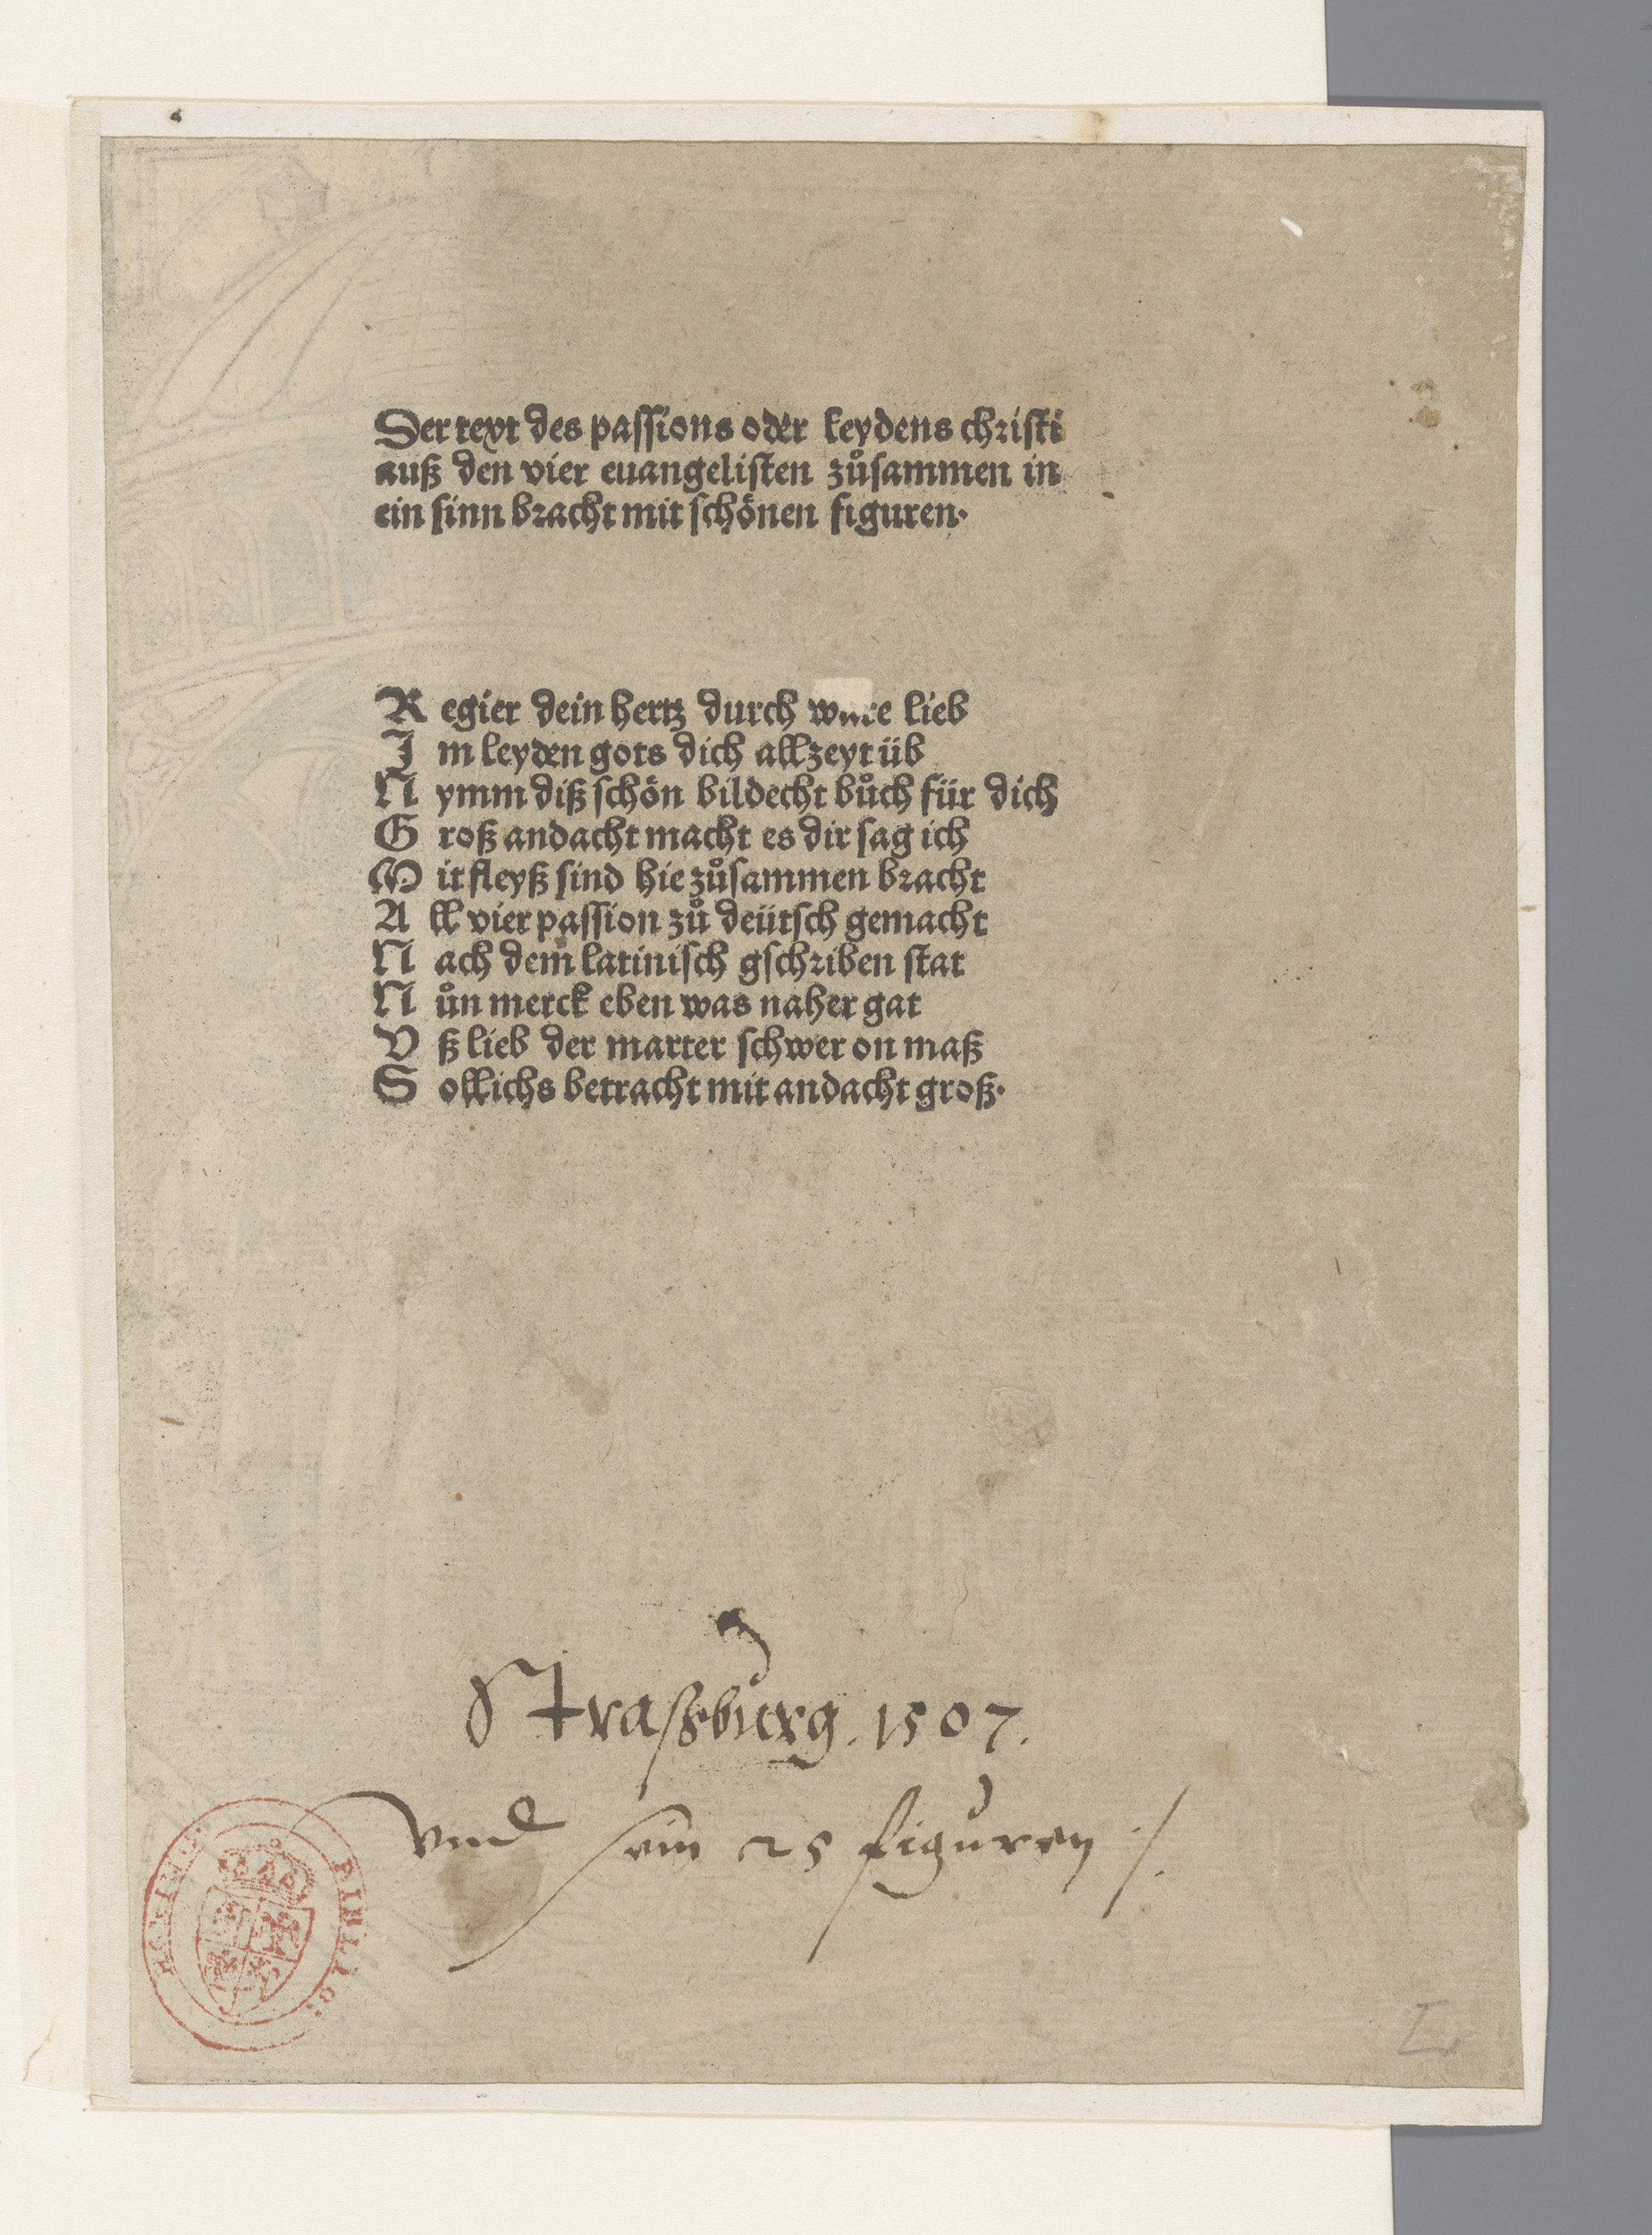 Der text des passions oder leydens christi
auß den vier euangelisten zůsammen in
ein sinn bracht mit schönen figuren.
R egier dein hertz durch ware lieb
I m leyden gots dich allzeyt üb
N ymm diß schön bildecht bůch für dich
G roß andacht macht es dir sag ich
M it fleyß sind hie zůsammen bracht
A ll vier passion zů deütsch gemacht
N ach dem latinisch gschriben stat
N ůn merck eben was naher gat
V ß lieb der marter schwer on maß
S ollichs betracht mit andacht groß.
Straßburg. 1507.
vnd sein 25 figuren ./.